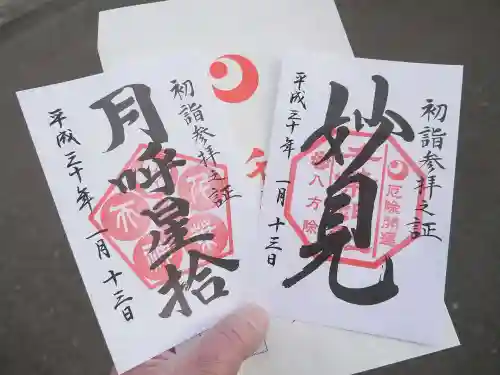 初詣参拝之証
月呼星拾
平成三十年 一月 十三日
初詣参拝之証
妙見
八方除
厄除開運
平成三十年 一月 十三日